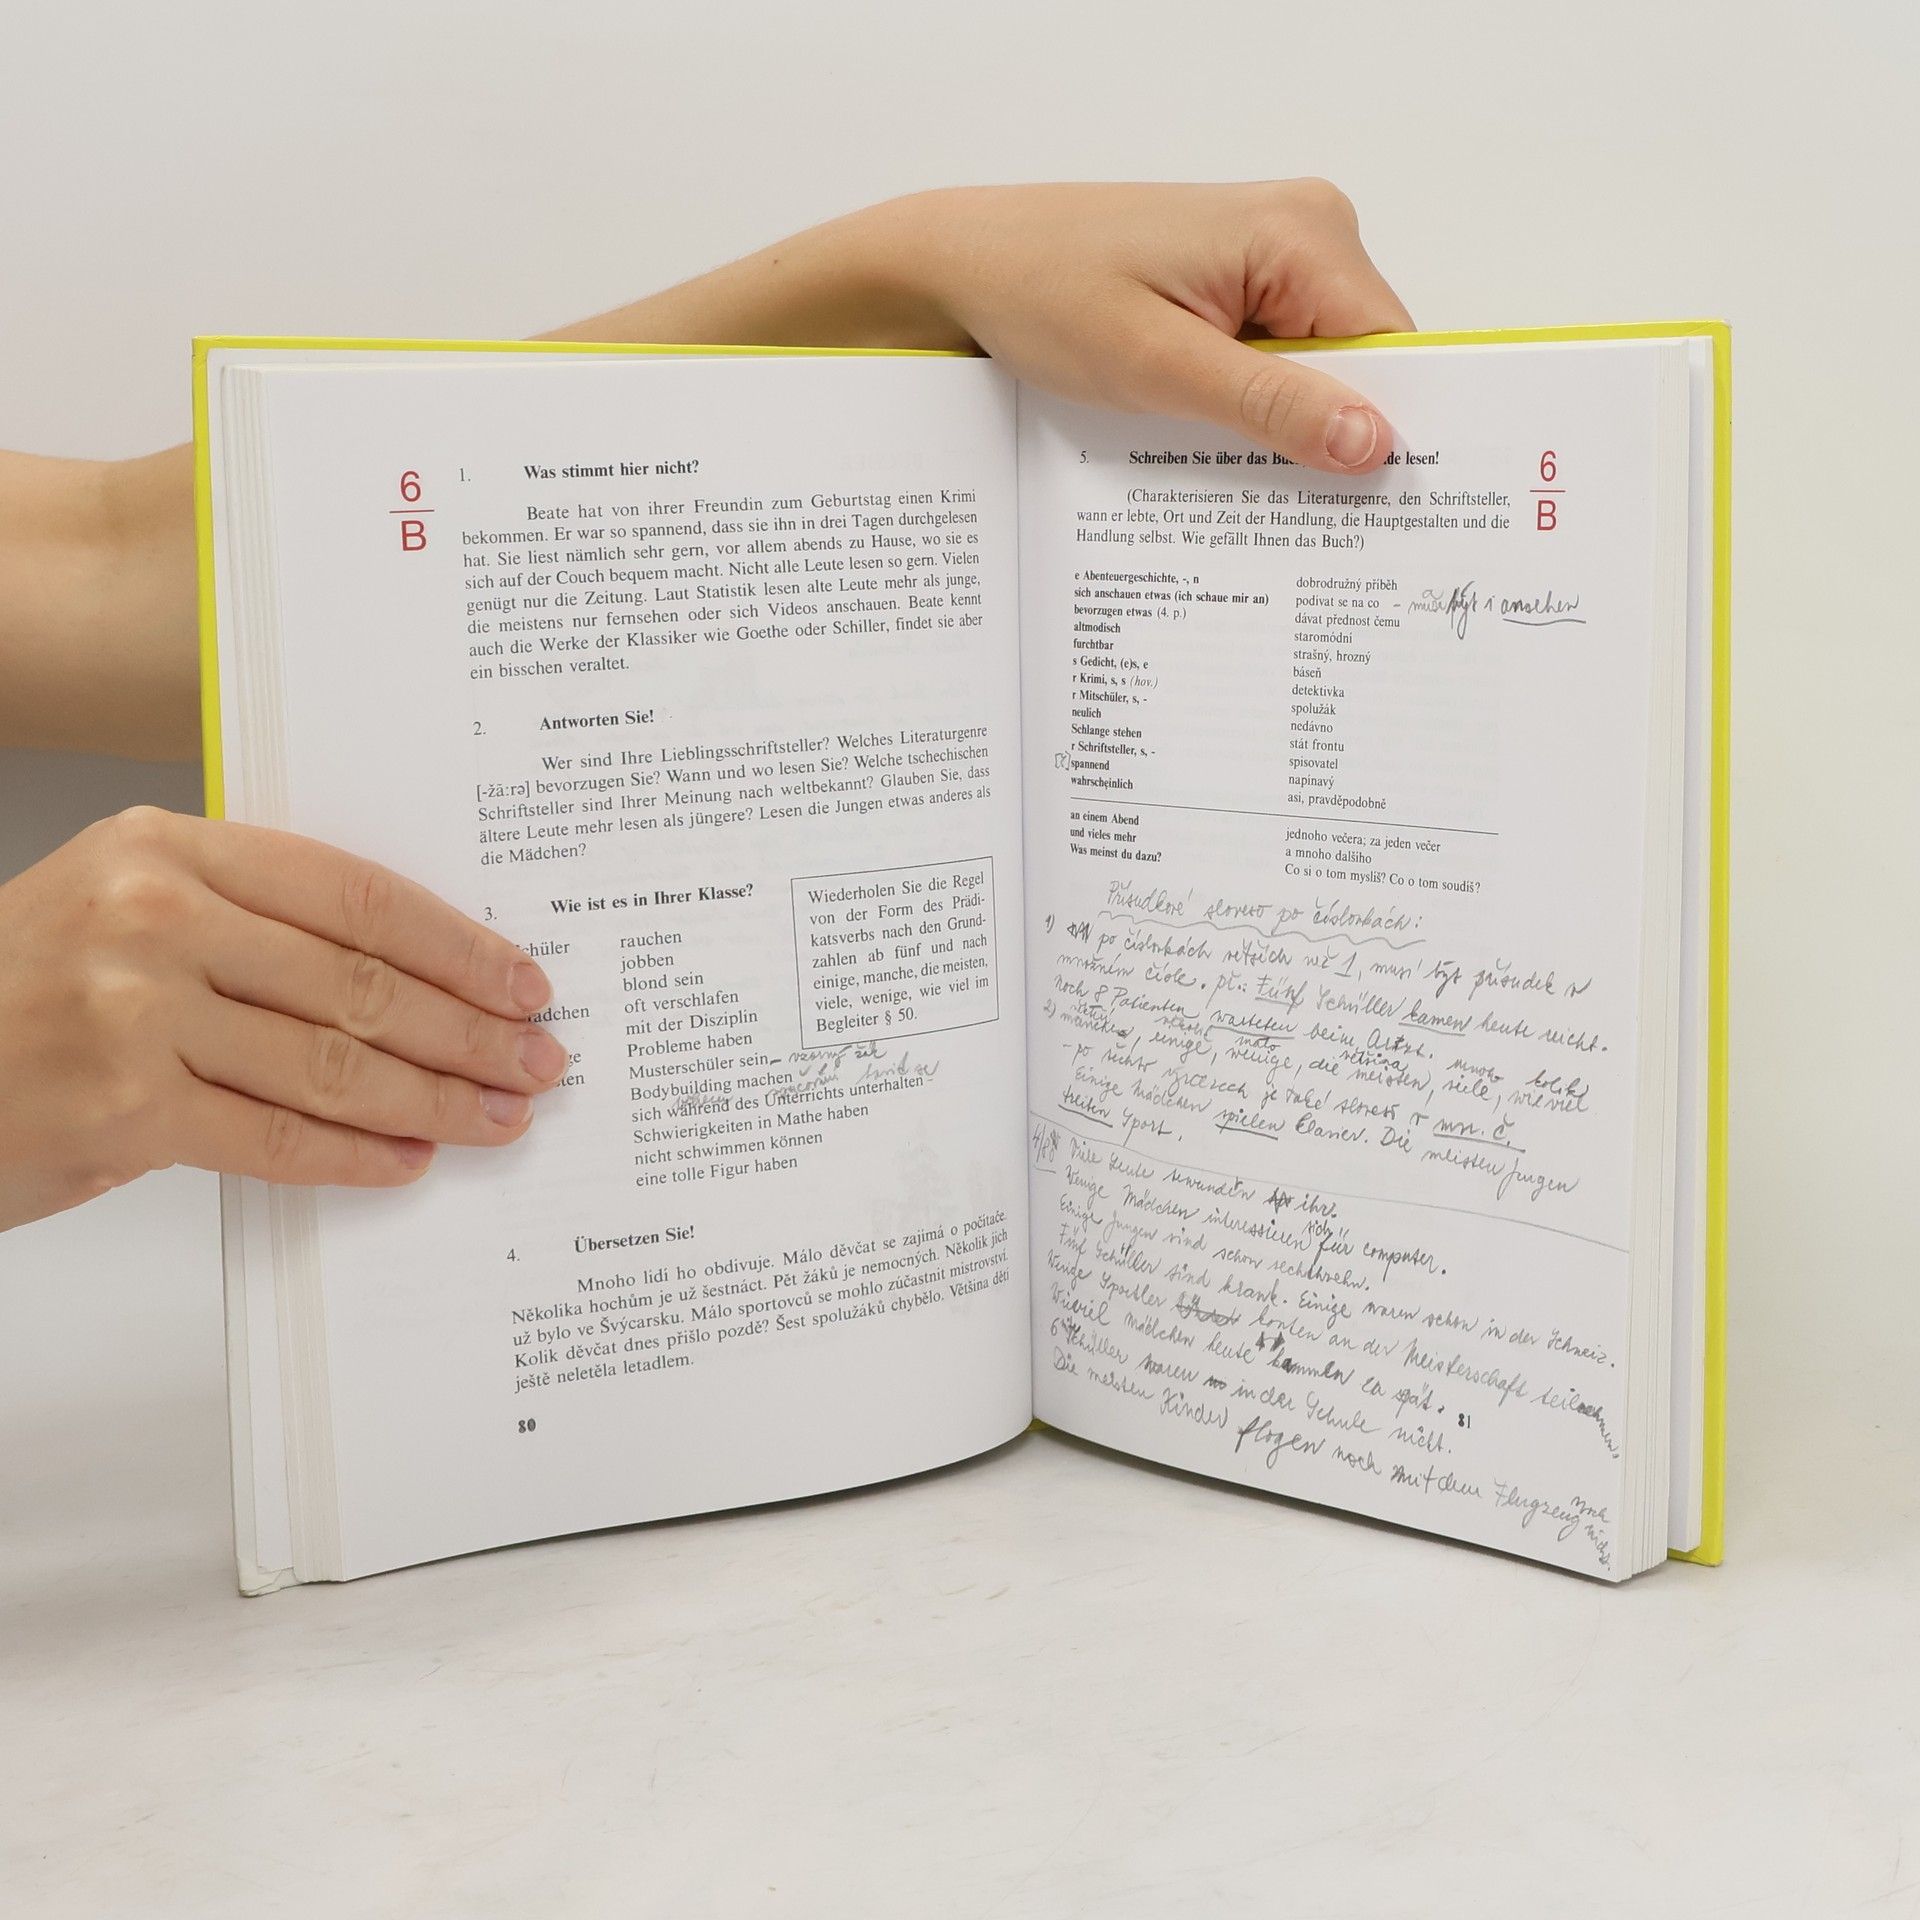 6
B
1. Was stimmt hier nicht?
Beate hat von ihrer Freundin zum Geburtstag einen Krimi
bekommen. Er war so spannend, dass sie ihn in drei Tagen durchgelesen
hat. Sie liest nämlich sehr gern, vor allem abends zu Hause, wo sie es
sich auf der Couch bequem macht. Nicht alle Leute lesen so gern. Vielen
genügt nur die Zeitung. Laut Statistik lesen alte Leute mehr als junge,
die meistens nur fernsehen oder sich Videos anschauen. Beate kennt
auch die Werke der Klassiker wie Goethe oder Schiller, findet sie aber
ein bisschen veraltet.
2. Antworten Sie!
Wer sind Ihre Lieblingsschriftsteller? Welches Literaturgenre
[-žã:rə] bevorzugen Sie? Wann und wo lesen Sie? Welche tschechischen
Schriftsteller sind Ihrer Meinung nach weltbekannt? Glauben Sie, dass
ältere Leute mehr lesen als jüngere? Lesen die Jungen etwas anderes als
die Mädchen?
3. Wie ist es in Ihrer Klasse?
chüler
ädchen
ge
ten
rauchen
jobben
blond sein
oft verschlafen
mit der Disziplin
Probleme haben
Musterschüler sein – vzorný žák
Bodybuilding machen
sich während des Unterrichts unterhalten – bavit se
Schwierigkeiten in Mathe haben
nicht schwimmen können
eine tolle Figur haben
Wiederholen Sie die Regel
von der Form des Prädi-
katsverbs nach den Grund-
zahlen ab fünf und nach
einige, manche, die meisten,
viele, wenige, wie viel im
Begleiter § 50.
4. Übersetzen Sie!
Mnoho lidí ho obdivuje. Málo děvčat se zajímá o počítače.
Několika hochům je už šestnáct. Pět žáků je nemocných. Několik jich
už bylo ve Švýcarsku. Málo sportovců se mohlo zúčastnit mistrovství.
Kolik děvčat dnes přišlo pozdě? Šest spolužáků chybělo. Většina dětí
ještě neletěla letadlem.
80
5. Schreiben Sie über das de lesen!
6
B
(Charakterisieren Sie das Literaturgenre, den Schriftsteller,
wann er lebte, Ort und Zeit der Handlung, die Hauptgestalten und die
Handlung selbst. Wie gefällt Ihnen das Buch?)
e Abenteuergeschichte, -, n dobrodružný příběh
sich anschauen etwas (ich schaue mir an) podívat se na co – může být i ansehen
bevorzugen etwas (4. p.) dávat přednost čemu
altmodisch staromódní
furchtbar strašný, hrozný
s Gedicht, (e)s, e báseň
r Krimi, s, s (hov.) detektivka
r Mitschüler, s, - spolužák
neulich nedávno
Schlange stehen stát frontu
r Schriftsteller, s, - spisovatel
spannend napínavý
wahrscheinlich asi, pravděpodobně
an einem Abend jednoho večera; za jeden večer
und vieles mehr a mnoho dalšího
Was meinst du dazu? Co si o tom myslíš? Co o tom soudíš?
Přísudkové sloveso po číslovkách:
1) po číslovkách větších než 1, musí být přísudek v
množném čísle. př.: Fünf Schüller kamen heute nicht.
Noch 8 Patienten warteten beim Artzt.
2) manche, einige, wenige, die meisten, viele, wieviel
málo většina mnoho kolik
– po těchto výrazech je také sloveso v mn. č.
Einige Mädchen spielen Klavier. Die meisten Jungen
treiben Sport.
Viele Leute bewundern ihr.
Wenige Mädchen interessieren sich für computer.
Einige Jungen sind schon sechstzehn.
Fünf Schüller sind krank. Einige waren schon in der Schweiz.
Wenige Sportler konten an der Meisterschaft teilnehmen.
Wieviel Mädchen heute kammen zu spät.
6 Schüller waren in der Schule nicht.
Die meisten Kinder flogen noch mit dem Flugzeug noch nicht.
81